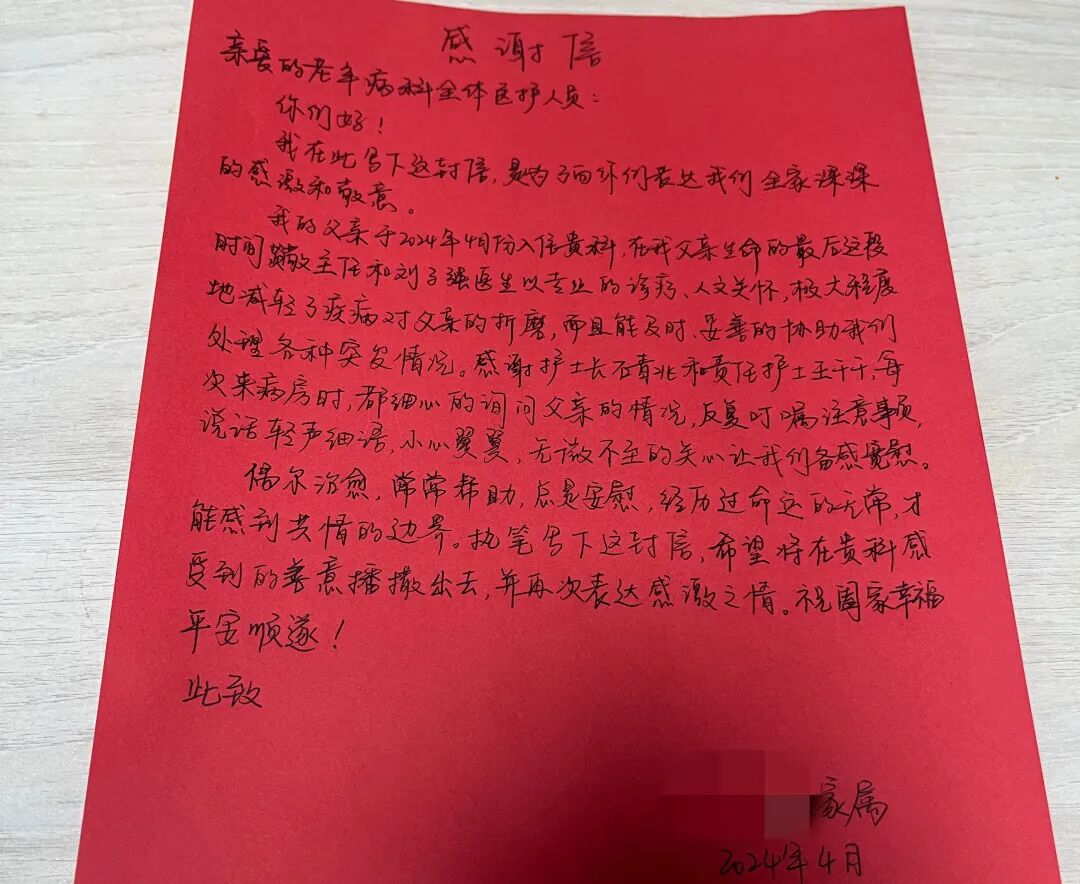 感谢信
亲爱的老年病科全体医护人员：
你们好！
我在此写下这封信，是为了向你们表达我们全家深深
的感激和敬意。
我的父亲于2024年4月份入住贵科，在我父亲生命的最后这段
时间 敬主任和刘子强医生以专业的诊疗、人文关怀，极大程度
地减轻了疾病对父亲的折磨，而且能及时、妥善的协助我们
处理各种突发情况。感谢护士长 青北和责任护士王千千，每
次来病房时，都细心的询问父亲的情况，反复叮嘱注意事项，
说话轻声细语，小心翼翼，无微不至的关心让我们备感宽慰。
偶尔治愈，常常帮助，总是安慰，经历过命运的无常，才
能感到共情的边界。执笔写下这封信，希望将在贵科感
受到的善意播撒出去，并再次表达感激之情。祝阖家幸福
平安顺遂！
此致
家属
2024年4月